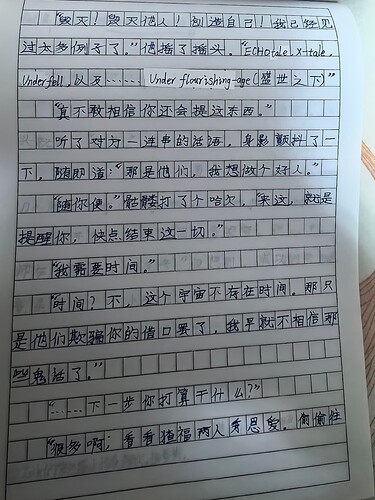 “毁灭！毁灭他人！创造自己！我已经见
过太多例子了。”他摇了摇头。“ECHOtale，X-tale，
Underfell，以及…… Under flourishing-age(盛世之下)”
“真不敢相信你还会提这东西。”
听了对方一连串的话语，身影颤抖了一
下，随即道：“那是他们，我想做个好人。”
“随你便。”骷髅打了个哈欠，“来这，就是
提醒你，快点结束这一切。”
“我需要时间。”
“时间？不，这个宇宙不存在时间。那只
是他们欺骗你的借口罢了，我早就不相信那
些鬼话了。”
“……下一步你打算干什么？”
“很多啊；看看猹福两人秀恩爱。偷偷往